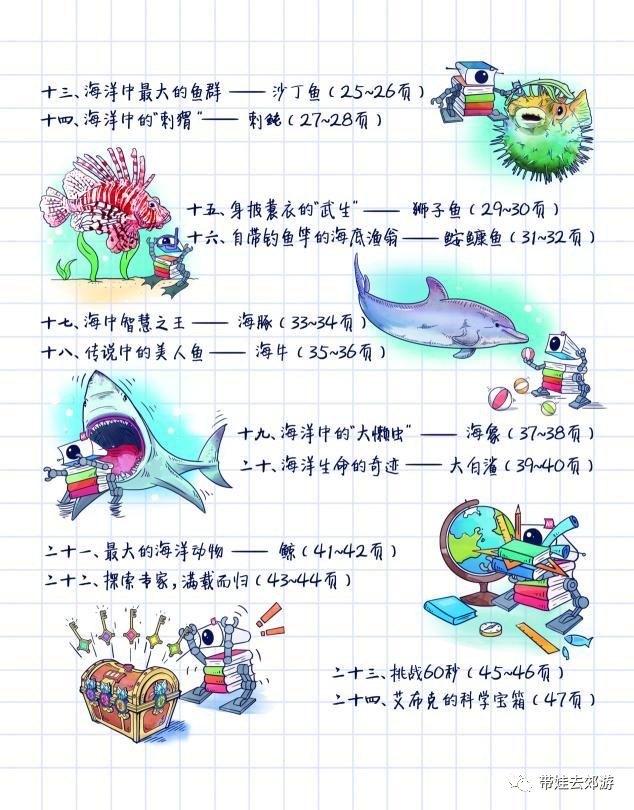 十三、海洋中最大的鱼群 —— 沙丁鱼(25~26页)
十四、海洋中的“刺猬”—— 刺鲀(27~28页)
十五、身披蓑衣的“武生”—— 狮子鱼(29~30页)
十六、自带钓鱼竿的海底渔翁——鮟鱇鱼(31~32页)
十七、海中智慧之王 —— 海豚(33~34页)
十八、传说中的美人鱼 —— 海牛(35~36页)
十九、海洋中的“大懒虫”—— 海象(37~38页)
二十、海洋生命的奇迹 —— 大白鲨(39~40页)
二十一、最大的海洋动物 —— 鲸(41~42页)
二十二、探索专家,满载而归(43~44页)
二十三、挑战60秒(45~46页)
二十四、艾布克的科学宝箱(47页)
带娃去郊游